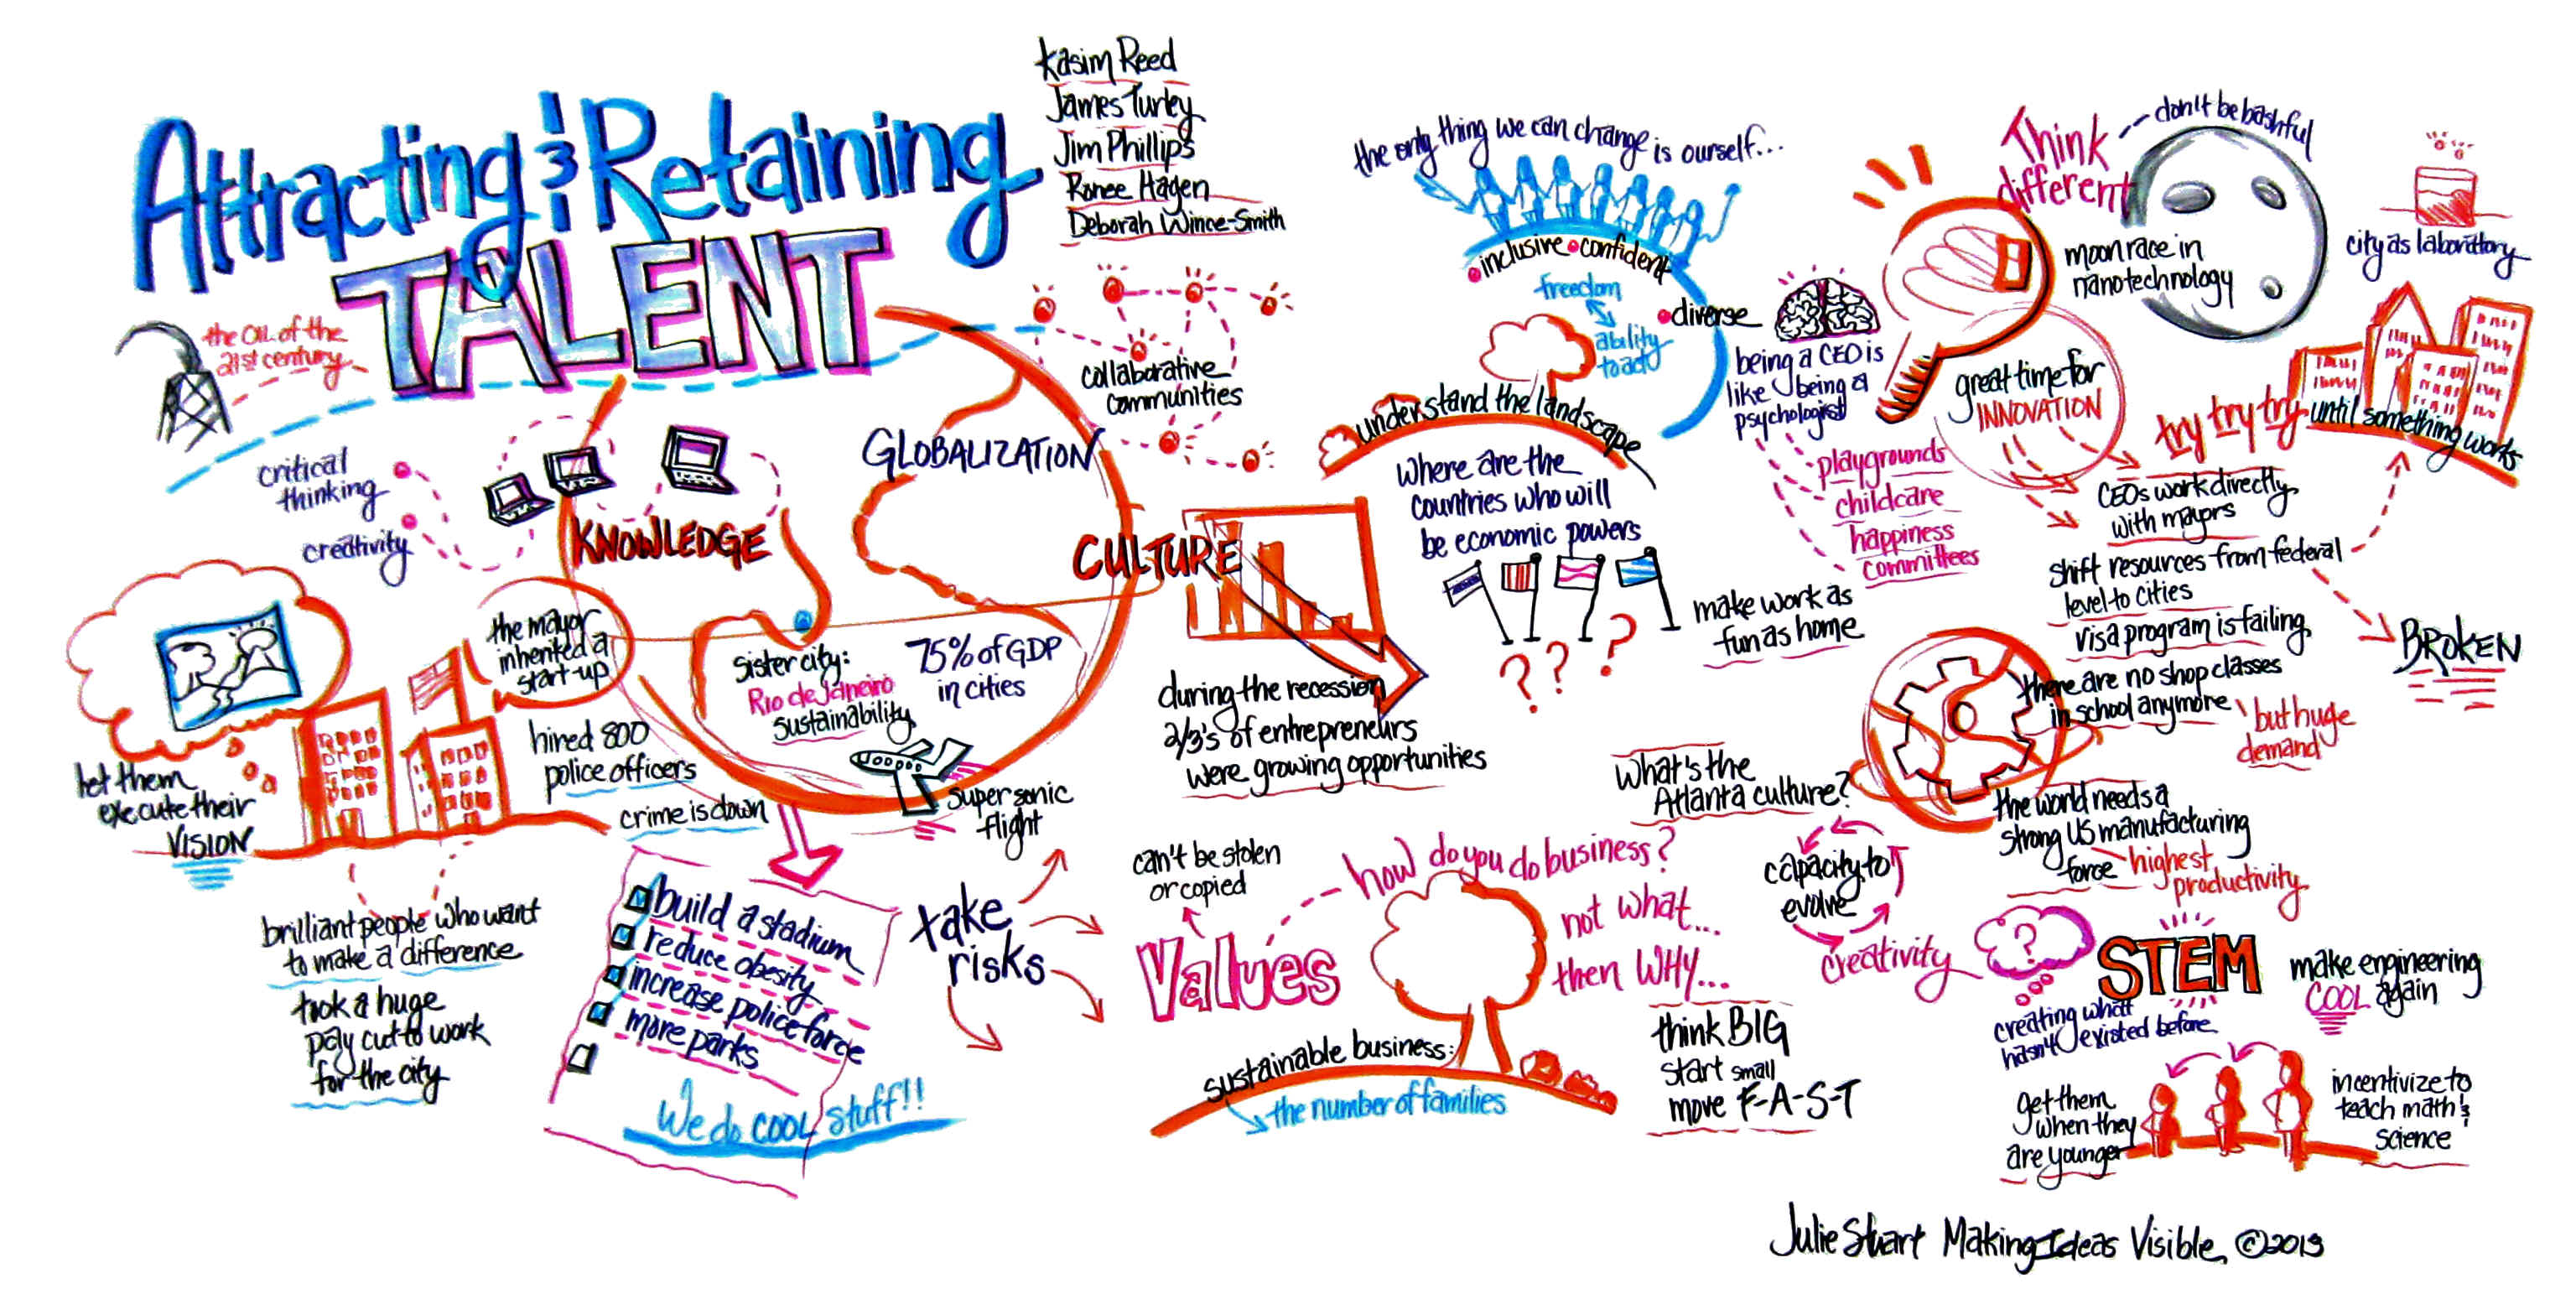 Attracting & Retaining
TALENT
Kasim Reed
James Turley
Jim Phillips
Ronee Hagen
Deborah Wince-Smith
the OIL of the
21st century
critical
thinking
creativity
KNOWLEDGE
GLOBALIZATION
CULTURE
collaborative
communities
let them
execute their
VISION
the mayor
inherited a
start-up
hired 800
police officers
crime is down
brilliant people who want
to make a difference
took a huge
pay cut to work
for the city
sister city:
Rio de Janeiro
sustainability
75% of GDP
in cities
super sonic
flight
build a stadium
reduce obesity
increase police force
more parks
We do COOL stuff!!
take
risks
during the recession
2/3's of entrepreneurs
were growing opportunities
can't be stolen
or copied
Values
how do you do business?
not what...
then WHY...
sustainable business:
the number of families
think BIG
start small
move F-A-S-T
the only thing we can change is ourself...
inclusive • confident
• diverse
freedom
ability
to act
understand the landscape
where are the
countries who will
be economic powers
? ? ?
being a CEO is
like being a
psychologist
playgrounds
childcare
happiness
committees
make work as
fun as home
what's the
Atlanta culture?
capacity to
evolve
creativity
Think
different
don't be bashful
moon race in
nanotechnology
great time for
INNOVATION
city as laboratory
try try try until something works
CEOs work directly
with mayors
shift resources from federal
level to cities
visa program is failing
BROKEN
there are no shop classes
in school anymore
but huge
demand
the world needs a
strong US manufacturing
force
highest
productivity
?
STEM
creating what
hasn't existed before
make engineering
COOL again
get them
when they
are younger
incentivize to
teach math &
science
Julie Stuart Making Ideas Visible ©2013